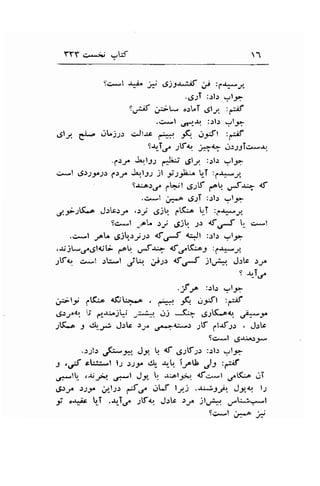 ۱۶
کتاب نخست ۳۳۳
پرسیدم: فن کفشدوزی نیز مفید است؟
جواب داد: آری.
گفتم: برای آماده ساختن کفش؟
جواب داد: بدیهی است.
گفتم: اکنون بگو ببینم عدالت درزمان صلح برای
بدست‌آوردن چه‌چیز بکار می‌آید؟
جواب داد: برای تنظیم روابط مردم.
پرسیدم: آیا منظور تو از روابط مردم درموردی است
که چند‌کس باهم کاری انجام می‌دهند؟
جواب داد: آری همین است.
پرسیدم: آیا هنگام بازی نرد، مردعادل همکارخوبی
است یا کسی‌که در بازی نرد ماهر است؟
جواب داد: البته کسی‌که دربازی‌نرد ماهر است.
پرسیدم: وهنگامی‌که چندکس باهم خانه‌ای‌می‌سازند،
مرد عادل بیش‌از کسی‌که درفن بنائی استاد است بکار
می‌آید ؟
جواب داد: هرگز.
گفتم: اکنون بگو ببینم ، همچنانکه هنگام نواختن
موسیقی بهمکاری چنگ زن بیشتر نیازمندیم تا بمردی
عادل ، درکدام کار دسته‌جمعی مرد عادل شریک و همکار
سودمندی است؟
جواب داد: درکاری که با پول پیوستگی دارد.
گفتم: ولی ظاهراً باید یک مورد را استثناء کنی، و
آن هنگامی‌است که بخواهند با پول اسبی بخرند، یااسبی
را بپول بفروشند. زیرا گمان می‌کنم دراین مورد مردی
اسب‌شناس بیش‌از مرد عادل بکار می‌آید. آیا عقیده تو
نیز همین است؟